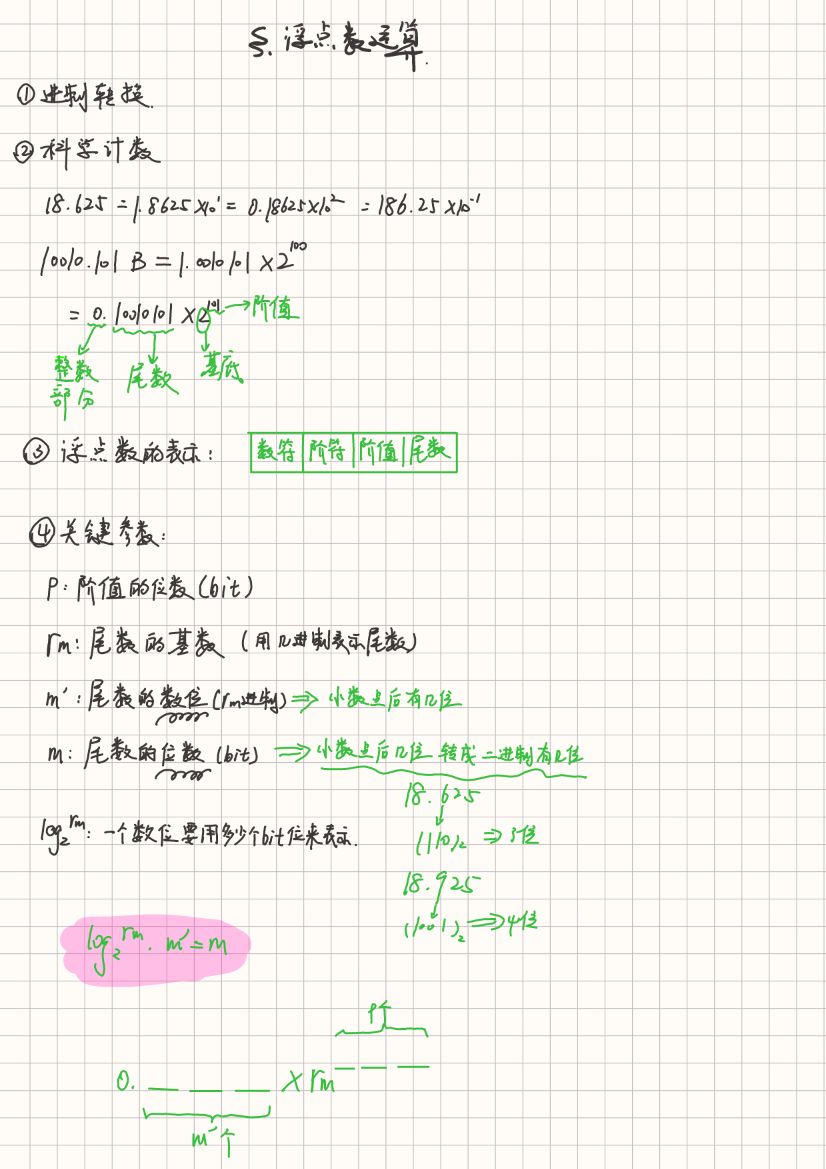 §. 浮点数运算.
① 进制转换.
② 科学计数
18.625 = 1.8625×10¹ = 0.18625×10² = 186.25×10⁻¹
10010.101 B = 1.0010101 × 2¹⁰⁰
= 0.10010101 × 2¹⁰¹ → 阶值
整数部分 尾数 基底
③ 浮点数的表示: 数符 阶符 阶值 尾数
④ 关键参数:
P: 阶值的位数(bit)
rm: 尾数的基数 (用几进制表示尾数)
m': 尾数的数位(rm进制) ⇒ 小数点后有几位
m: 尾数的位数 (bit) ⇒ 小数点后几位 转成二进制有几位
18.625
(110)₂ ⇒ 3位
log₂rm: 一个数位要用多少个bit位来表示.
18.925
(1001)₂ ⇒ 4位
log₂rm · m' = m
P个
0. _ _ _ × rm _ _ _
m'个